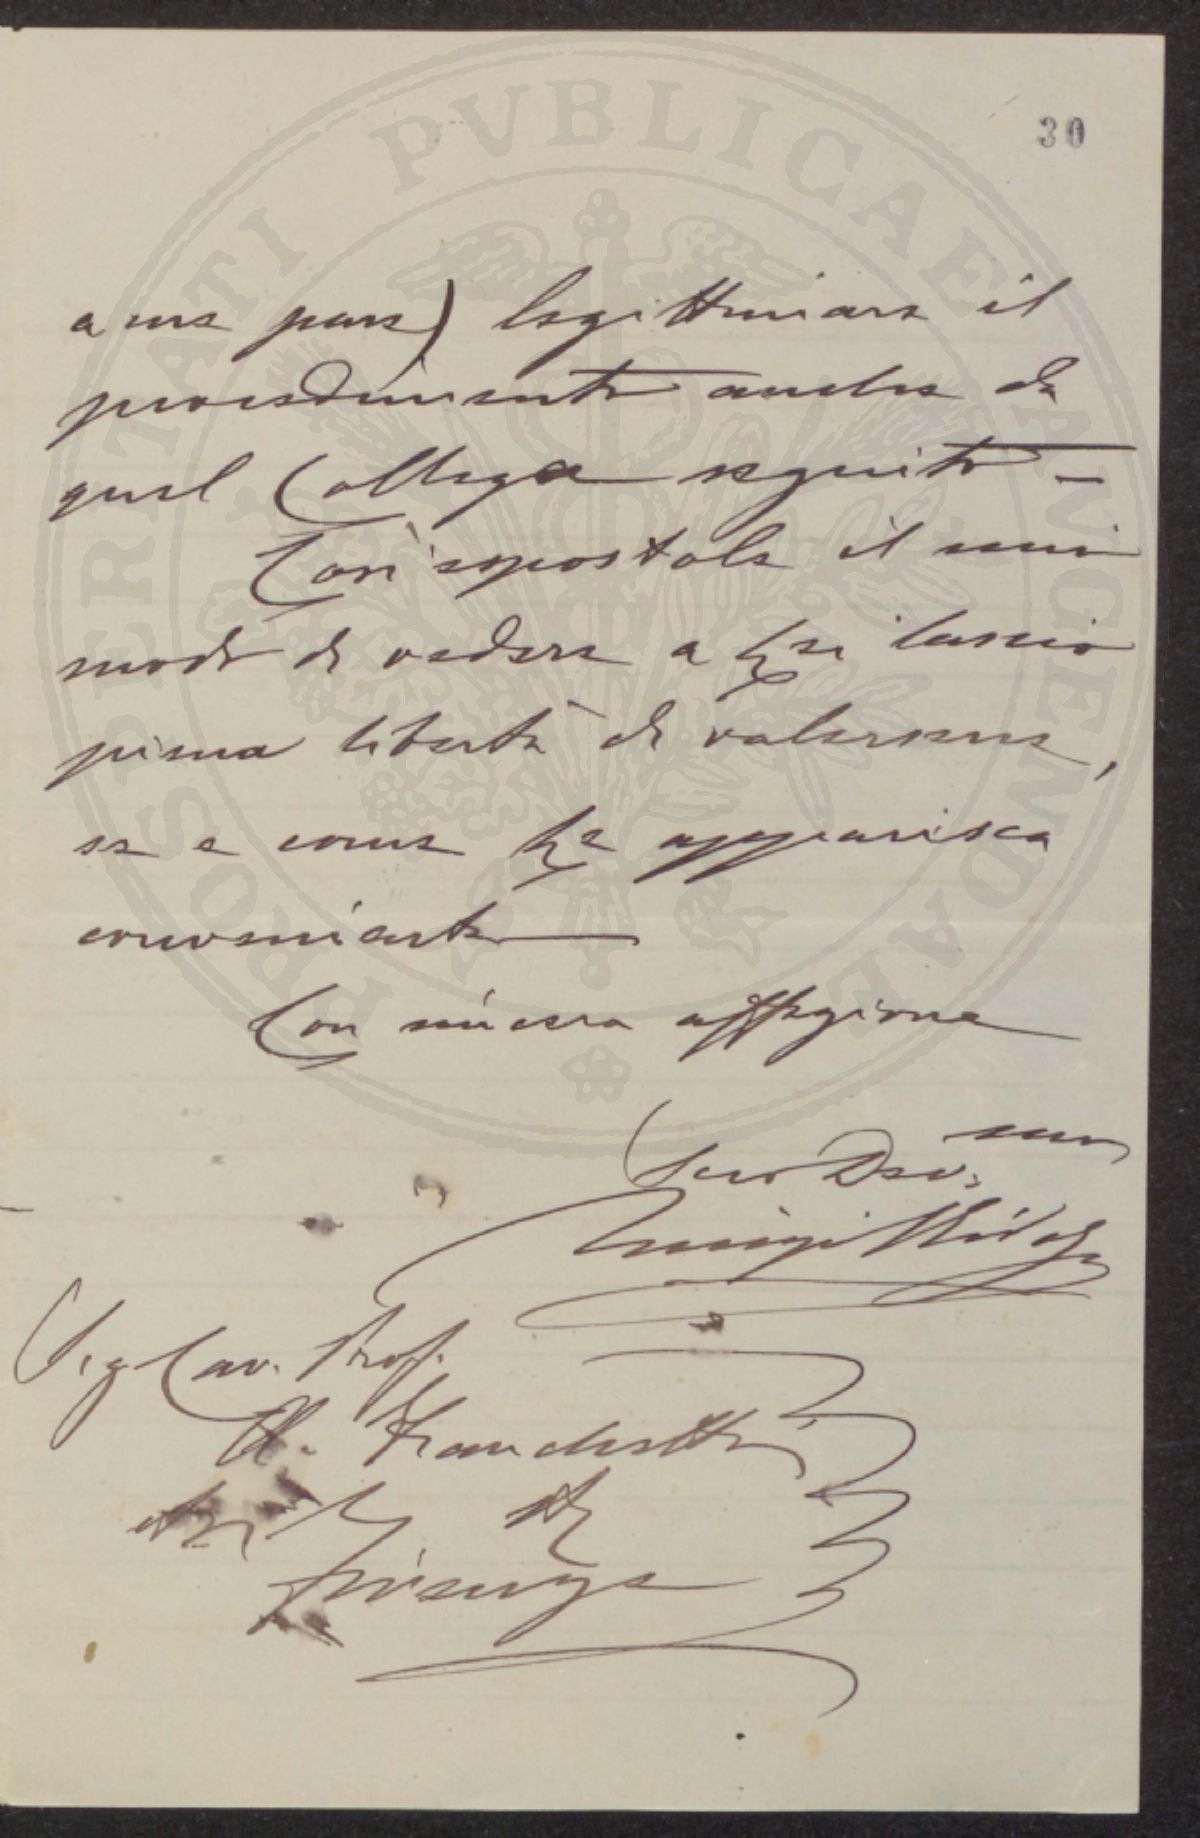 PROSPERITATI PVBLICAE AVGENDAE
30
a me pare) legittimare il
procedimento anche da
quel Collega seguito —
Così espostole il mio
modo di vedere a Lei lascio
piena libertà di valersene,
se e come Le apparisca
conveniente
Con sincera affezione
Suo Dev.mo
Luigi
Sig Cav. Prof.
A. Franchetti
Firenze